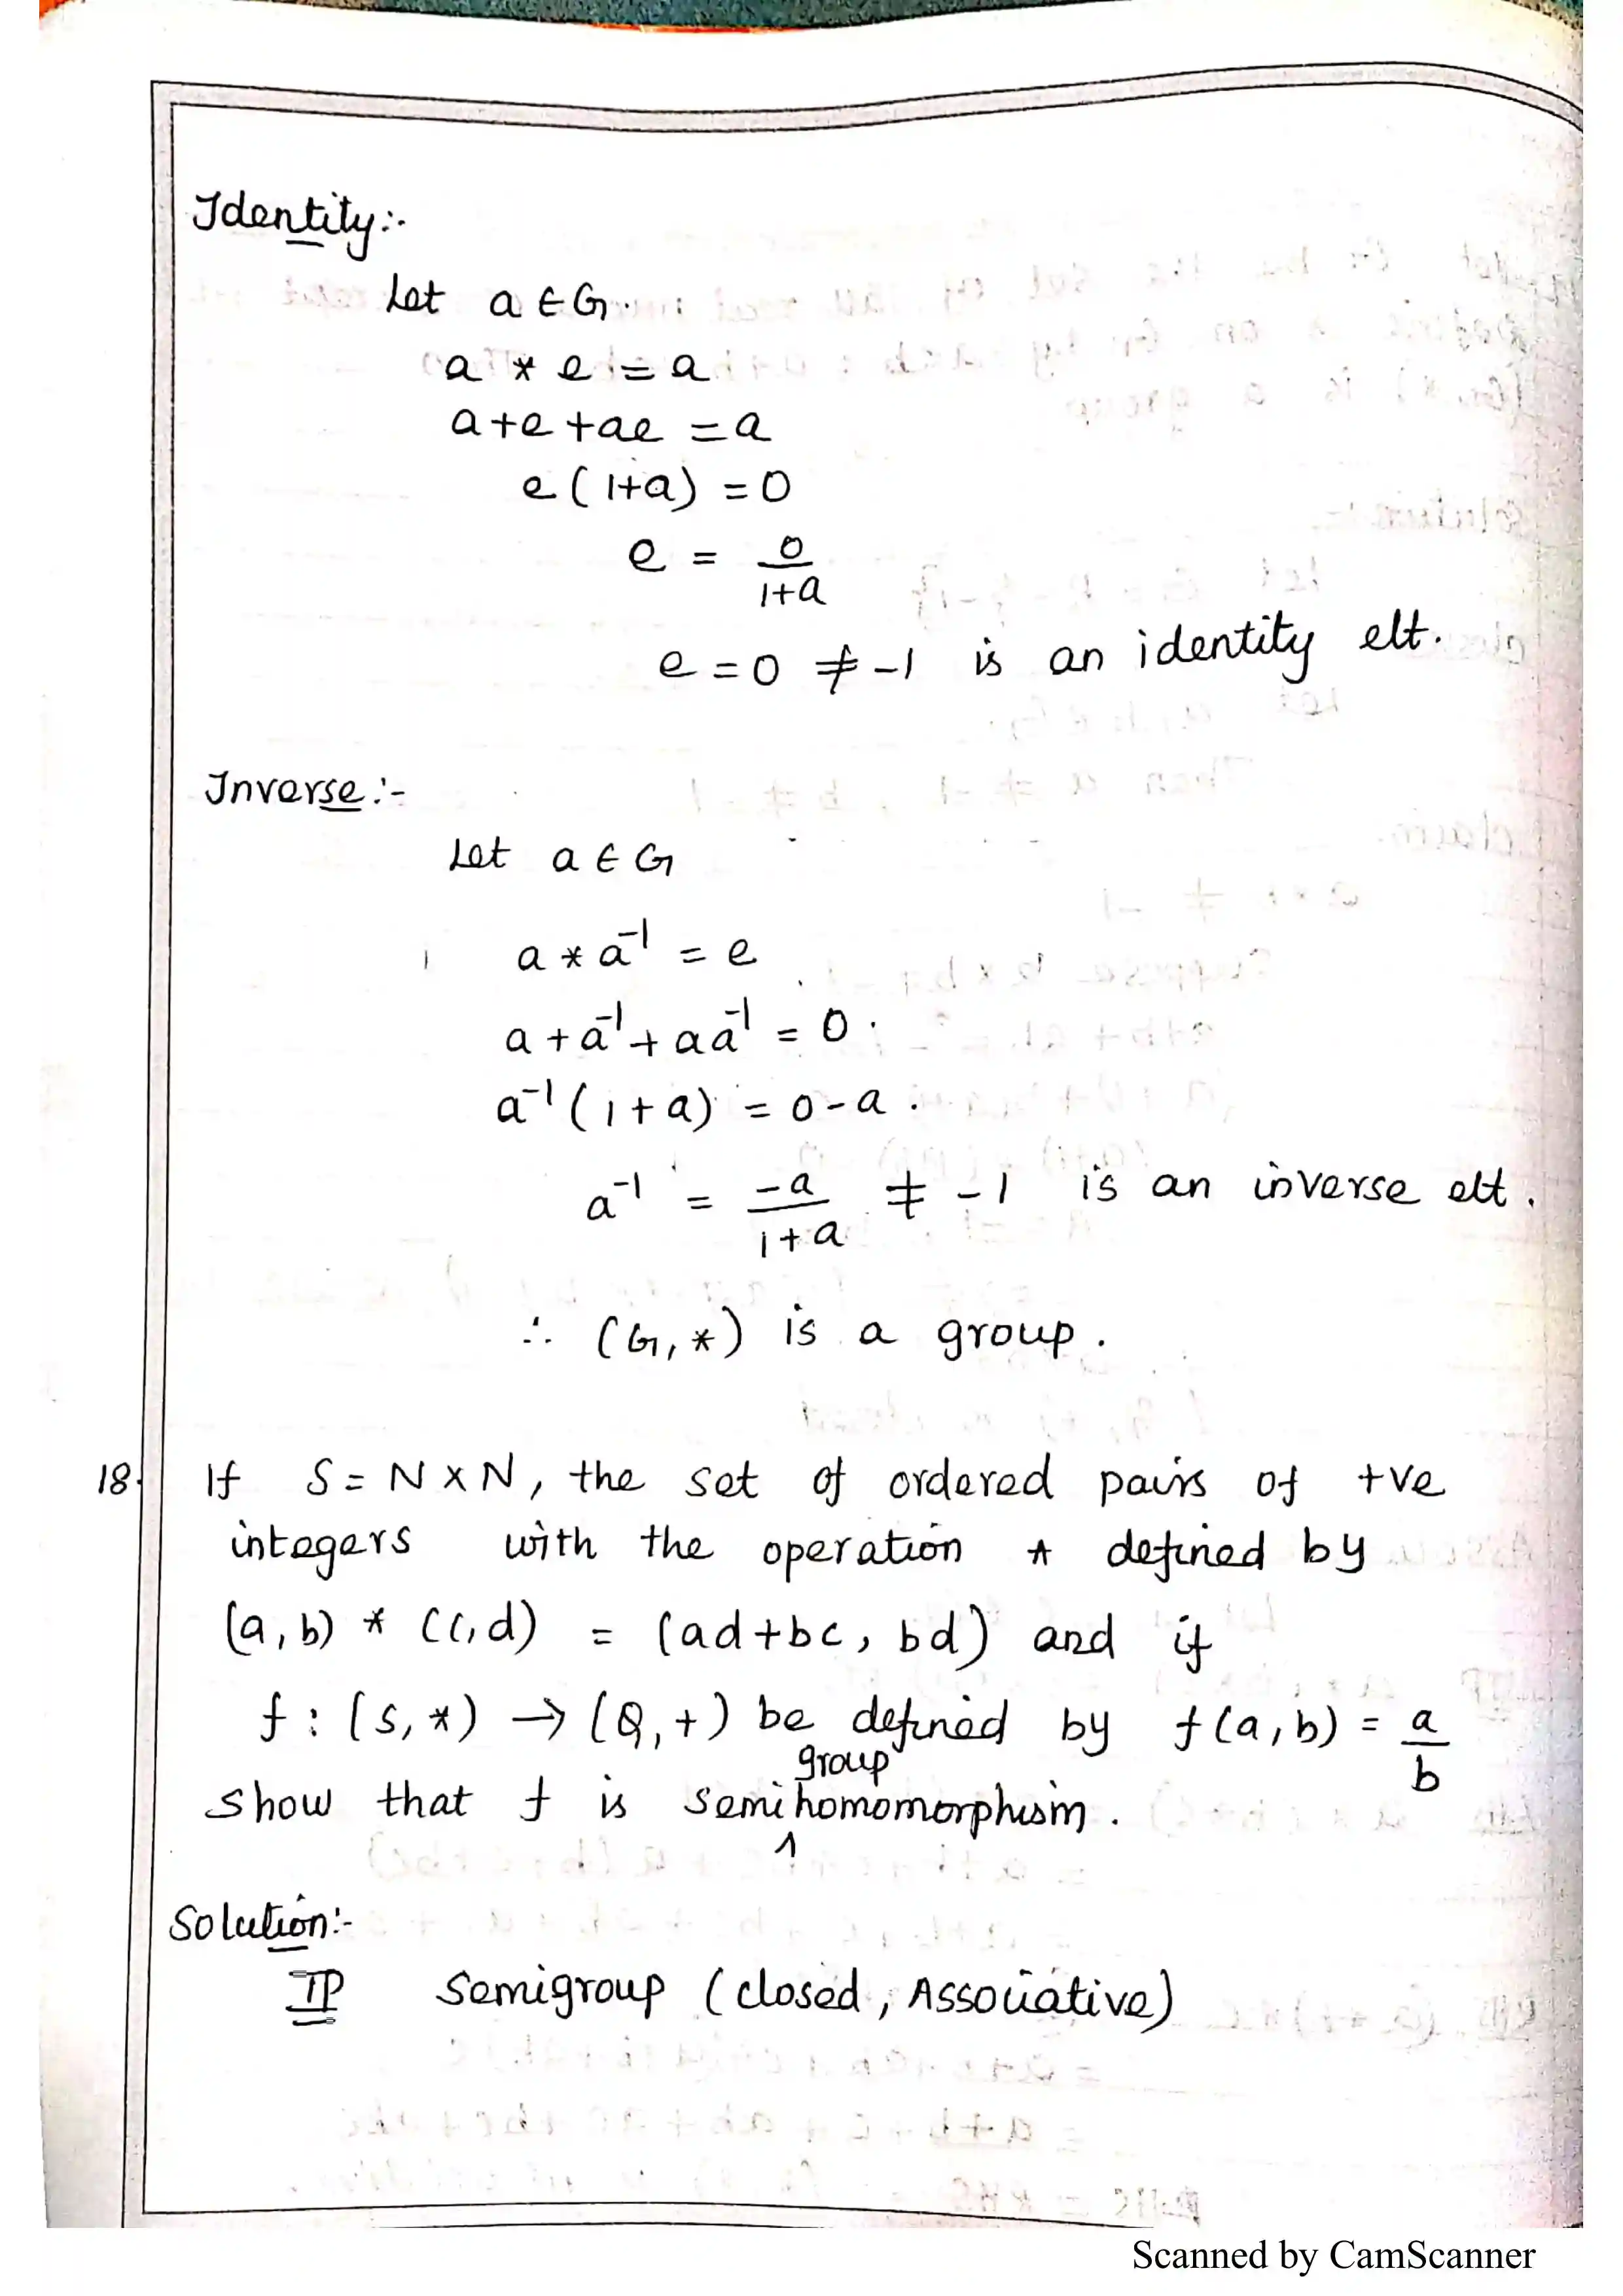 Identity:-
Let a ∈ G.
a * e = a
a+e+ae = a
e(1+a) = 0
e = 0/1+a
e = 0 ≠ -1 is an identity elt.
Inverse:-
Let a ∈ G
a * a⁻¹ = e
a + a⁻¹ + aa⁻¹ = 0.
a⁻¹(1+a) = 0-a.
a⁻¹ = -a/1+a ≠ -1 is an inverse elt.
∴ (G,*) is a group.
18. If S = N X N, the set of ordered pairs of +ve
integers with the operation * defined by
(a,b) * (c,d) = (ad+bc, bd) and if
f : (S,*) → (Q,+) be defined by f(a,b) = a/b
show that f is semi group homomorphism.
Solution:-
TP Semigroup (closed, Associative)
Scanned by CamScanner